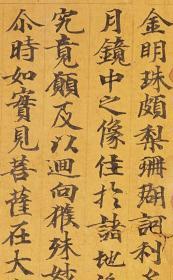 金明珠頗梨珊瑚訶利
月鏡中之像住於諸地
究竟願及以迴向獲殊
尒時如實見菩薩在大